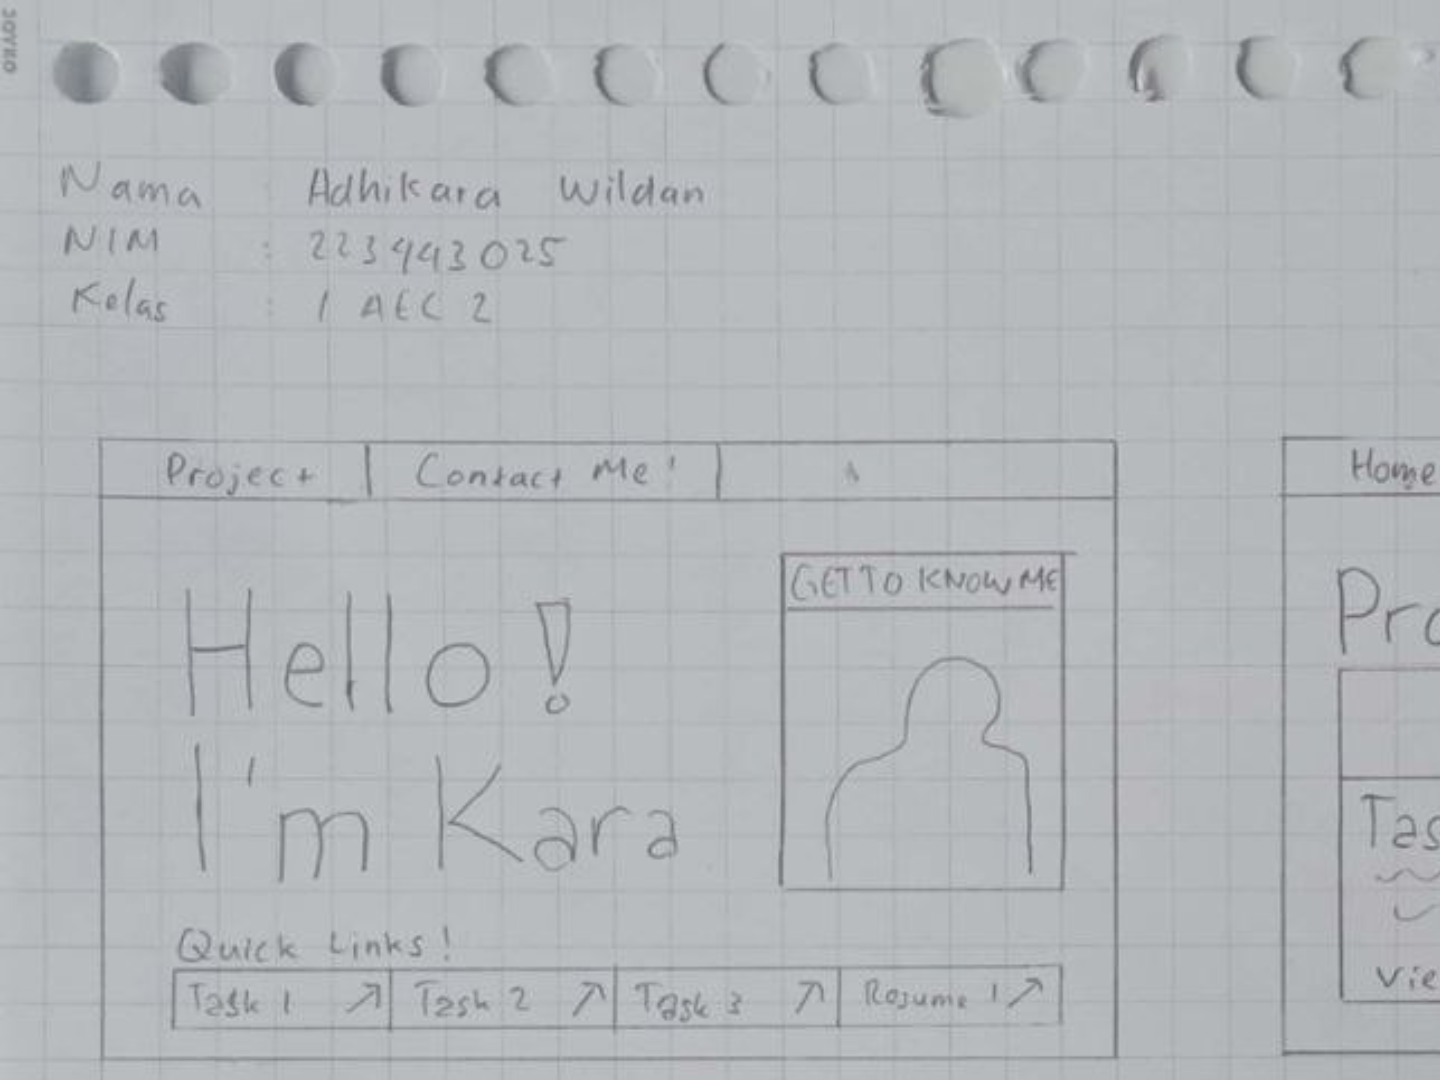 JOYKO
Nama : Adhikara Wildan
NIM : 223443025
Kelas : 1 AEC 2
Project
Contact Me!
Home
Hello!
I'm Kara
GET TO KNOW ME
Pro
Tas
Quick Links!
Task 1 ↗
Task 2 ↗
Task 3 ↗
Resume 1 ↗
Vie